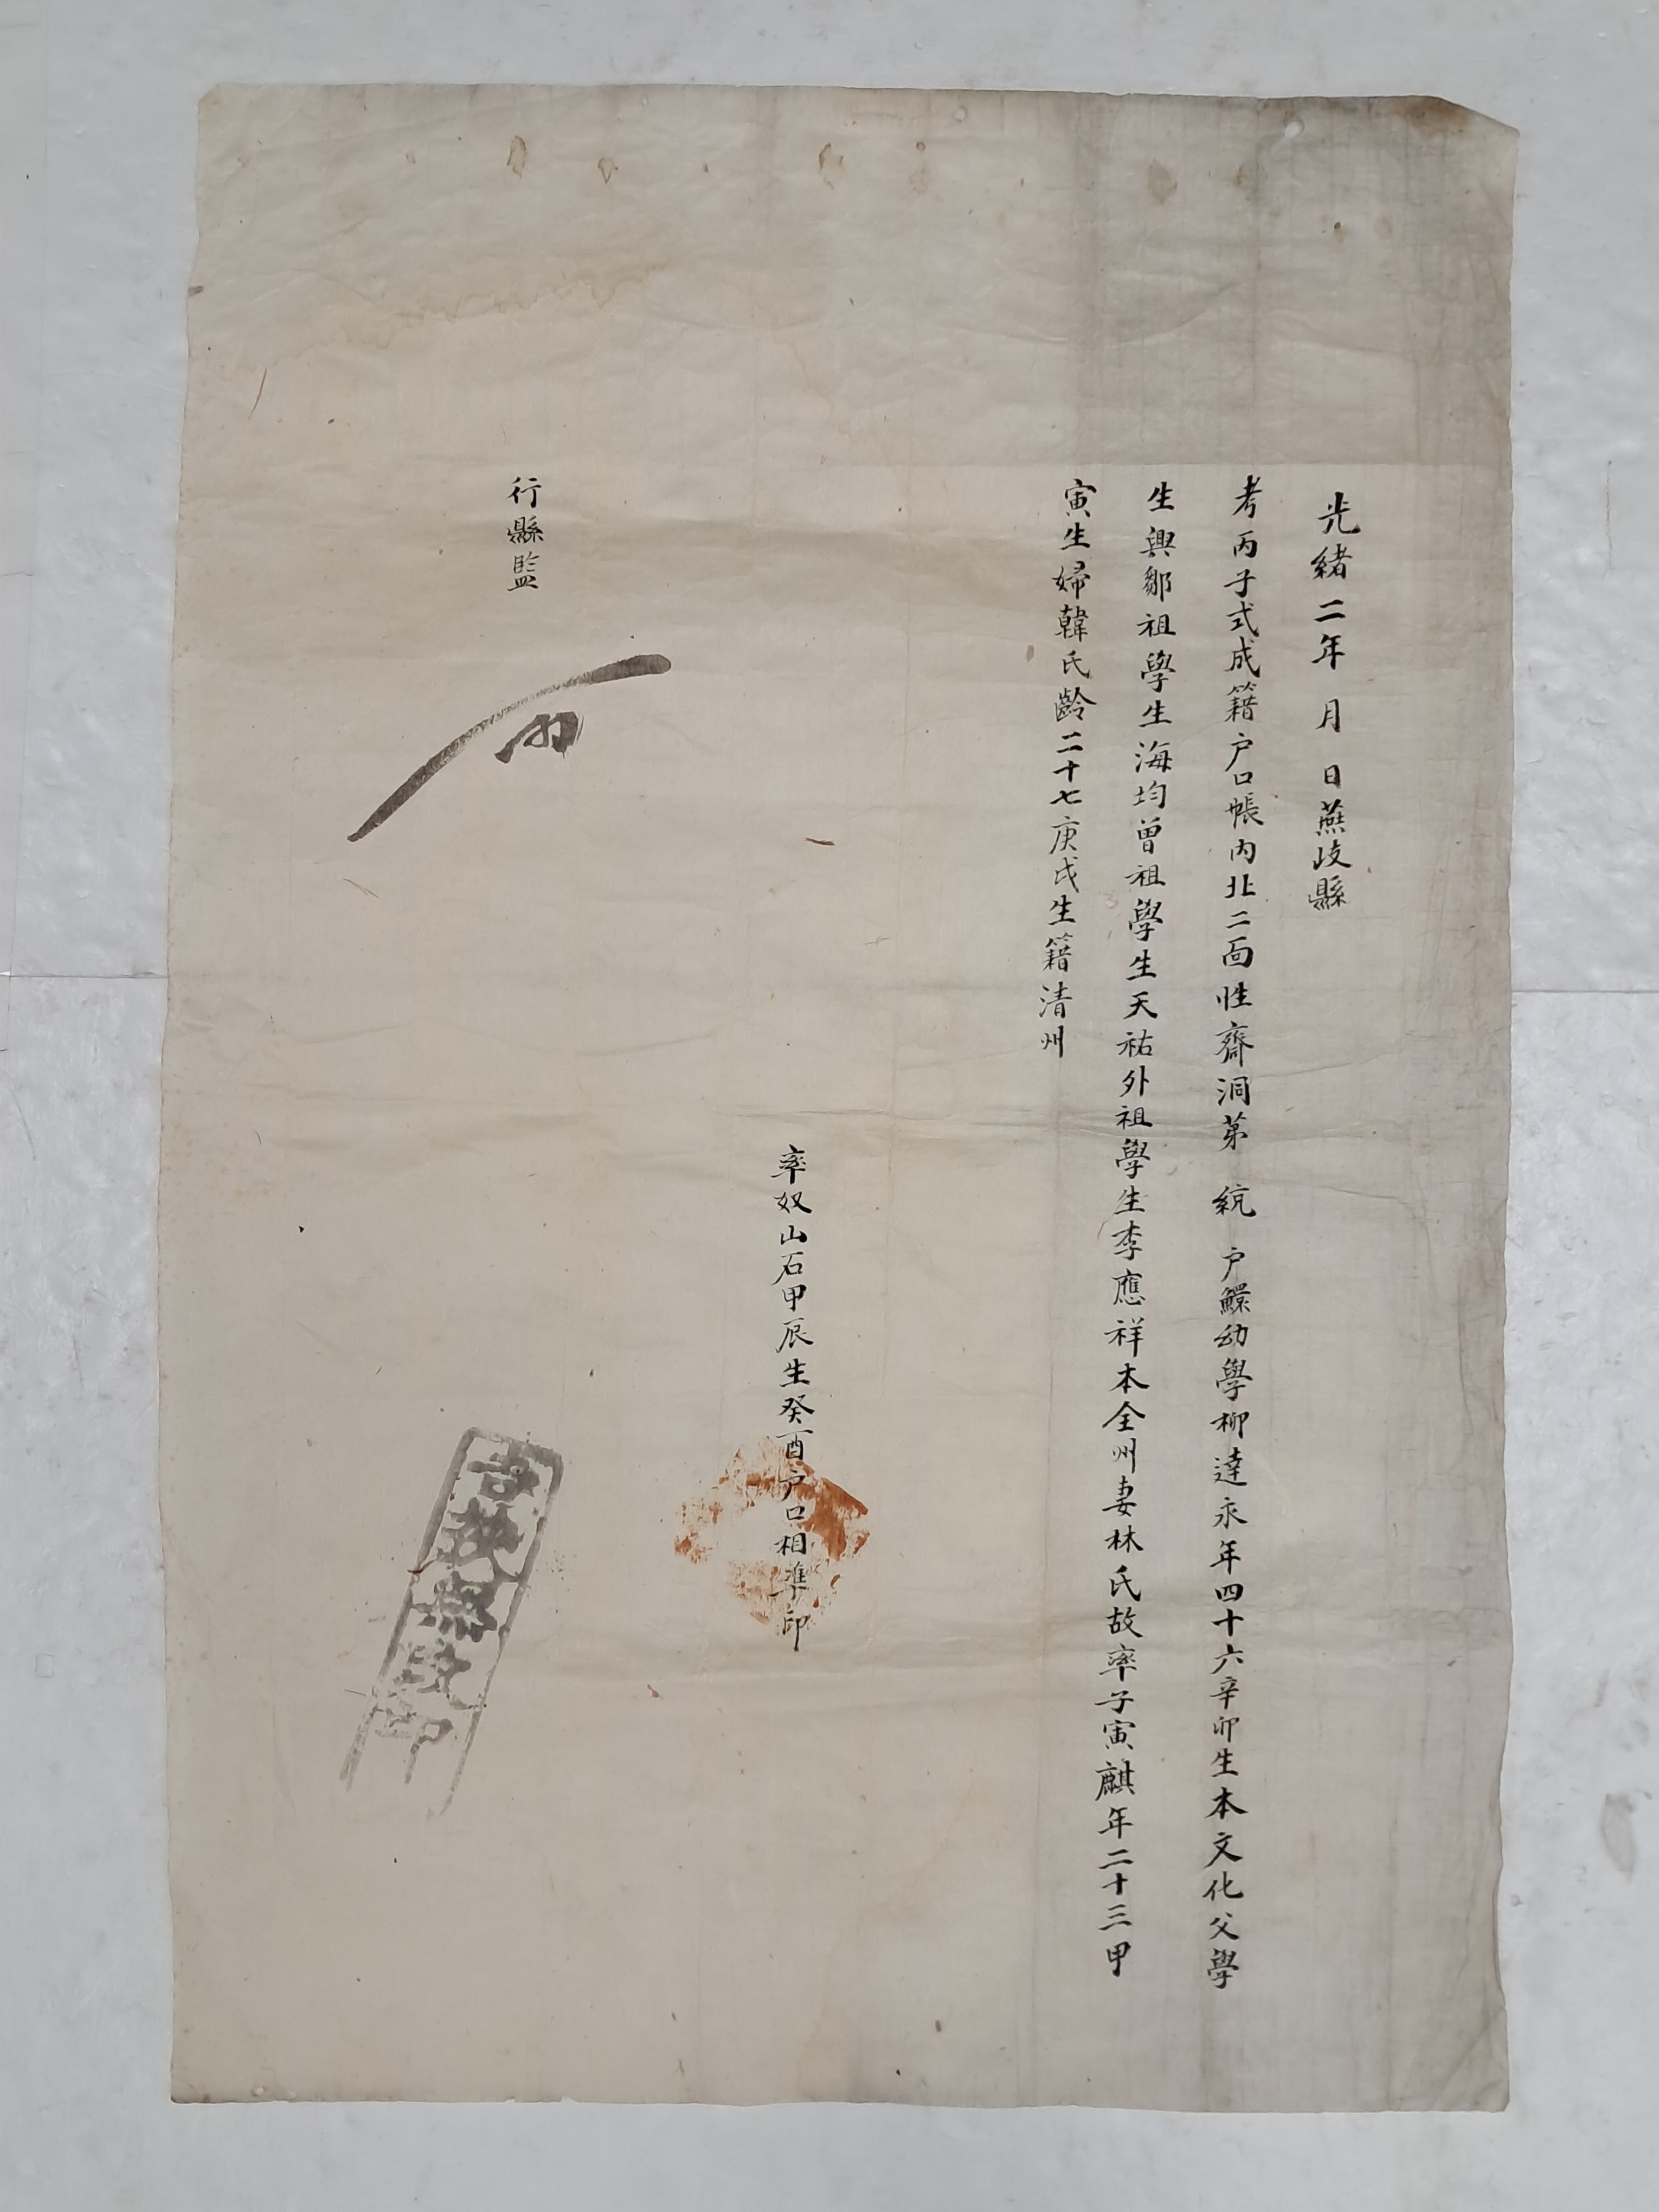 光緖二年 月 日燕岐縣
考丙子式成籍户口帳內北二面性齊洞第 統 户鰥幼學柳達永年四十六辛卯生本文化父學
生興鄒祖學生海均曾祖學生天祐外祖學生李應祥本全州妻林氏故率子寅麒年二十三甲
寅生婦韓氏齡二十七庚戌生籍淸州
率奴山石甲辰生癸酉户口相準印
行縣監